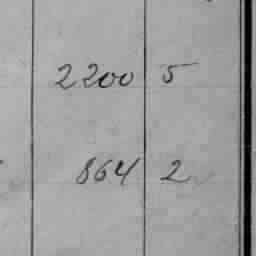 2200 5
864 2